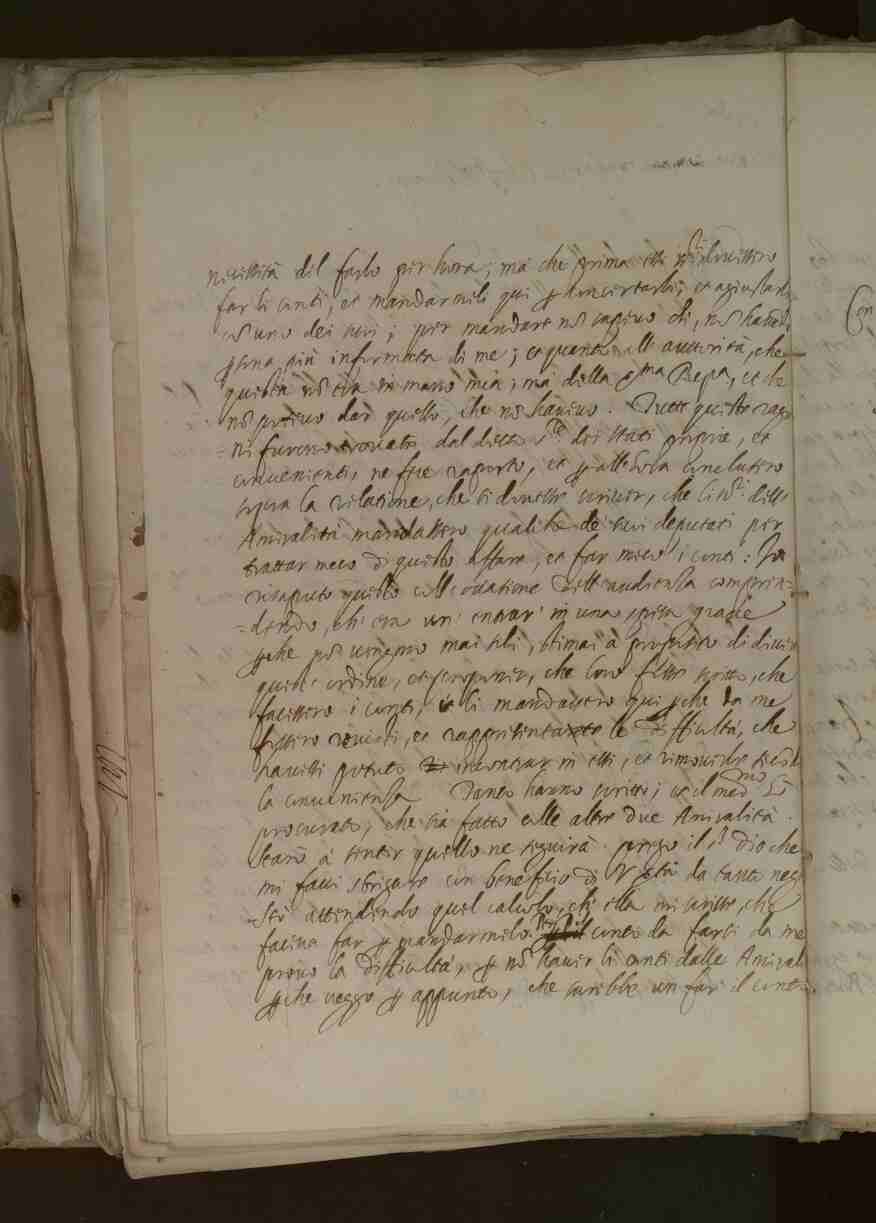 necessità del farlo per hora; ma che prima essi dovessero
far li conti, et mandarmeli qui per concertarli, et agiustarli
con uno dei suoi; per mandare nō sapevo chi, nō havēdo
persona più informata di me; et quanto all' auttorità, che
questa nō era in mano mia; ma della Ser.ma Repca, et che
nō potevo dar quello, che nō havevo. Tutte queste ragio
=ni furono trovate dal detto Sr. dei Stati proprie, et
convenienti, ne fece raporto, et per all'hora conclusero
sopra la relatione, che si dovesse scriver, che li Sri. dell'
Amiralità mandassero qualche de suoi deputati per
trattar meco di questo affare, et far meco i conti: Io
risaputo questo coll' occasione dell'audienza compren=
=dendo, ch' era un' entrar in una spesa grande
perche poi vengono mai soli, stimai à proposito di diver
quest' ordine, et proponer, che loro fosse scritto, che
facessero i conti, et li mandassero qui perche da me
fossero veduti, et rappresentate le difficultà, che
havessi potuto incontrar in essi, et rimoverle secōdo
la convenienza. Tanto hanno scritto; et il medmo hò
procurato, che sia fatto colle altre due Amiralità.
Starò à sentir quello ne seguirà. prego il Sr. Dio che
mi facci sbrigare con beneficio di V. Stà da tanti neg
Stò attendendo quel calcolo, ch' ella mi scrisse, che
faceva far per mandarmelo. Nel conto da farsi da me
provo la difficultà, per nō haver li conti dalle Amiral
perche veggo per appunto, che sarebbe un far il conto